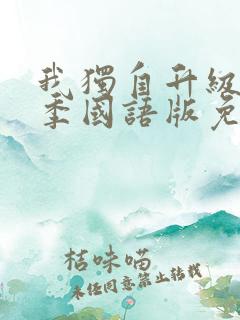 我獨自升級
季國語版免
桔味喵
未任同意禁止转载